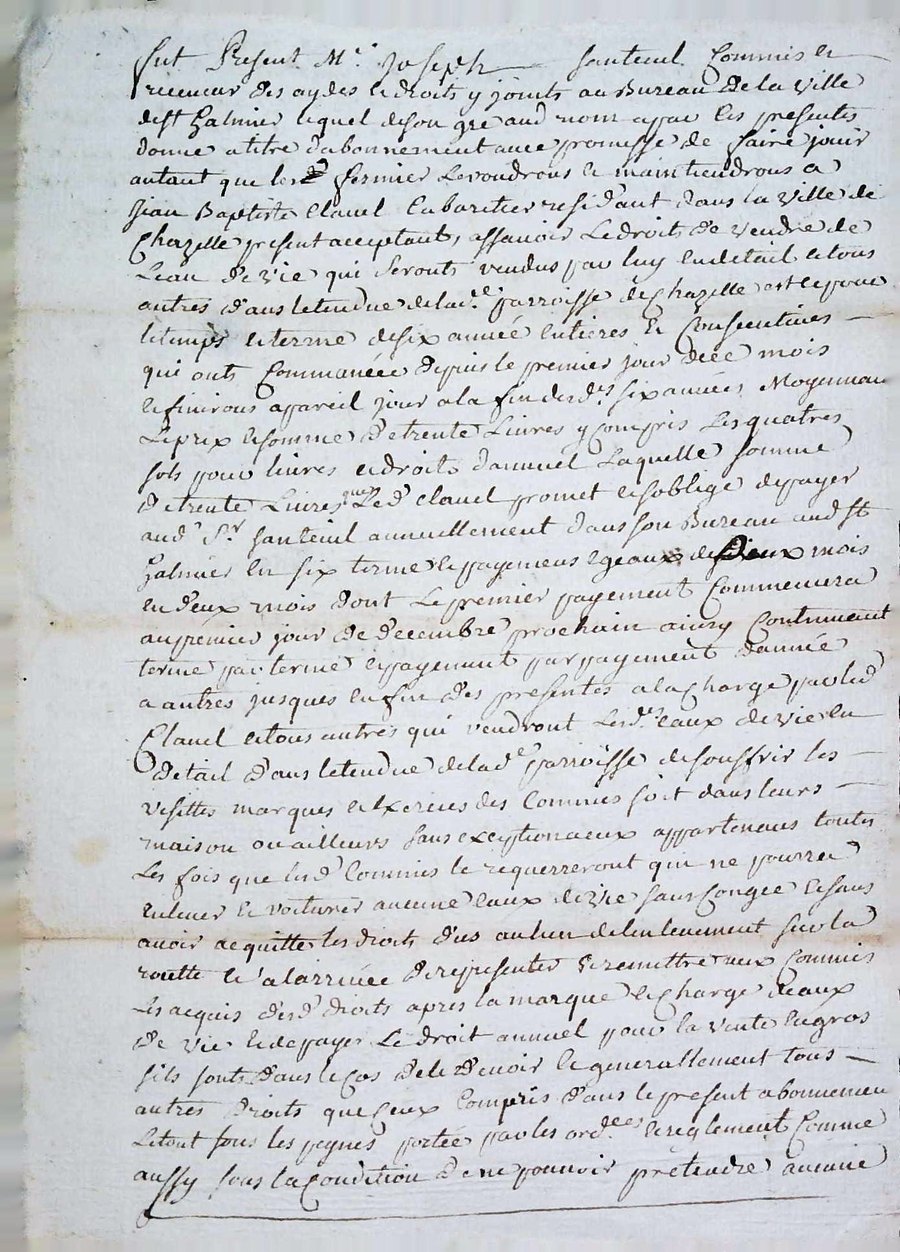 fut Present Mr. Joseph Santeuil Commis et
receveur des aydes et droits y joints au Bureau de la ville
de st Galmier lequel de son gre aud nom a par les presentes
donne a titre d'abonnement avec promesse de faire jouir
autant que les fermier le voudrons et maintiendrons a
Jean Baptiste Clavel Cabaretier residant dans la ville de
Chazelle present acceptant, assavoir Le droits de vendre de
Leau de vie qui seronts vendus par luy en detail et tous
autres dans letendue de la de. parroisse de Chazelle et ce pour
le temps et terme de six année entieres et Consecutives
qui onts Commancée depuis le premier jour de ce mois
et finirons a pareil jour a la fin desd. six années, Moyennan
Le prix et somme de trente Livres y Compris Les quatres
sols pour livres et droits dannuel Laquelle somme
de trente Livres que Led. Clavel promet et soblige de payer
aud. Sr. Santeuil annuellement dans son Bureau aud st
Galmier en six terme et payemens egeaux de Deux mois
en deux mois dont Le premier payement Commencera
au premier jour de decembre prochain ainsy Continuent
terme par terme et payement par payement dannée
a autres jusques en fin des presentes a la Charge par led
Clavel et tous autres qui vendront Lesdes. eaux de vie en
detail dans letendue de la de. parroisse de souffrir les
visittes marques et Exercices des Commis soit dans leurs
maison ou ailleurs sans exception a eux appartenans toutes
Les fois que lesd. Commis le requerreront qui ne pourra
enlever et voiturer aucune eaux de vie sans Congee et sans
avoir acquitte les droits dus au lieu de lenlevement sur la
routte et a larrivée de representer et remettre aux Commis
Les acquis desd. droits apres la marque et Charge deaux
de vie et de payer Le droit annuel pour la vente en gros
sils sonts dans le Cas de le devoir et generallement tous
autres droits que Ceux Compris dans le present abonnemen
Le tout sous les peynes portée par les ordces. et reglement Comme
aussy sous la Condition de ne pouvoir pretendre aucune